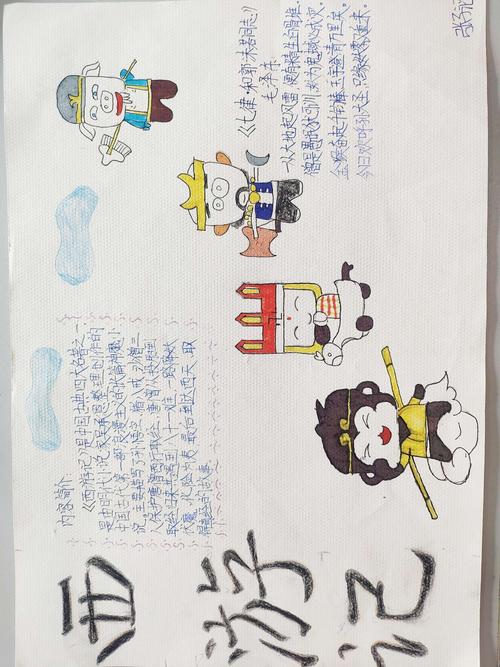 西游记
内容简介:
《西游记》是中国古典四大名著之一,
是由明代小说家吴承恩整理创作的
中国古代第一部浪漫主义长篇神魔小
说,主要描写了孙悟空、猪八戒、沙僧三
人保护唐僧西行取经,唐僧从投胎到
取经归来共遭遇八十一难,一路降妖
伏魔,化险为夷,最后到达西天,取
得真经的故事。
《七律·和郭沫若同志》
毛泽东
一从大地起风雷,便有精生白骨堆。
僧是愚氓犹可训,妖为鬼蜮必成灾。
金猴奋起千钧棒,玉宇澄清万里埃。
今日欢呼孙大圣,只缘妖雾又重来。
张子